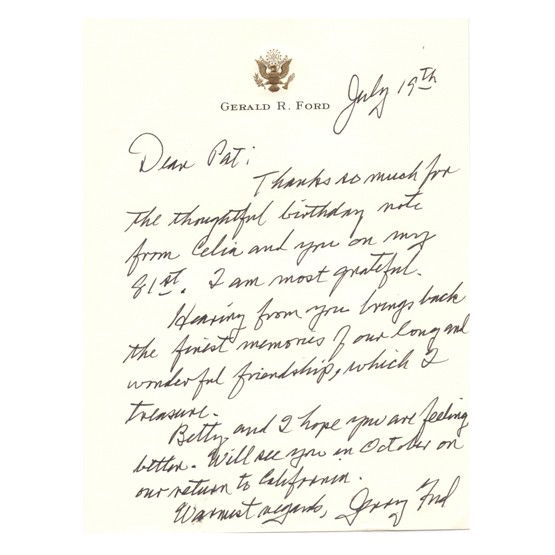 GERALD R. FORD
July 19th
Dear Pat:
Thanks so much for
the thoughtful birthday note
from Celia and you on my
81st. I am most grateful.
Hearing from you brings back
the finest memories of our long and
wonderful friendship, which I
treasure.
Betty and I hope you are feeling
better. Will see you in October on
our return to California.
Warmest regards, Jerry Ford